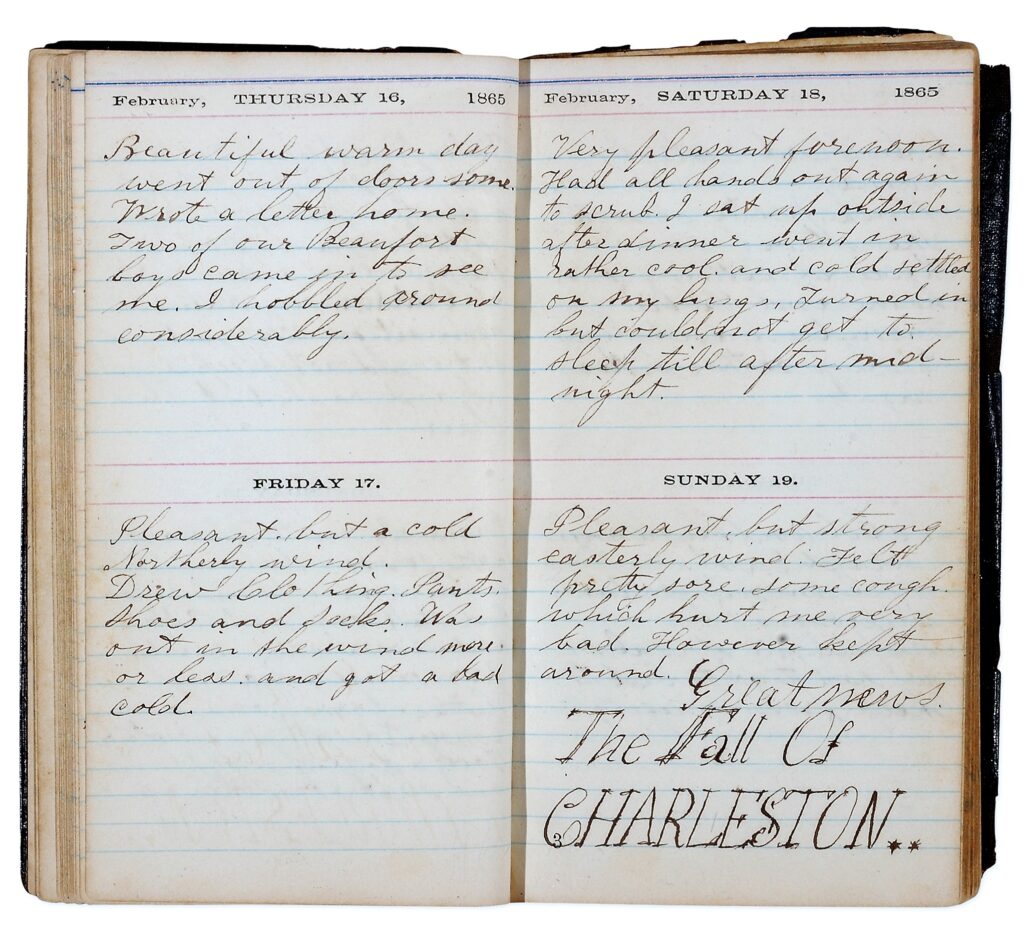 February, THURSDAY 16, 1865
Beautiful warm day
went out of doors some.
Wrote a letter home.
Two of our Beaufort
boys came in to see
me. I hobbled around
considerably.
FRIDAY 17.
Pleasant, but a cold
Northerly wind.
Drew Clothing. Pants.
Shoes and Socks. Was
out in the wind more
or less. and got a bad
cold.
February, SATURDAY 18, 1865
Very pleasant forenoon.
Had all hands out again
to scrub. I sat up outside
after dinner went in
rather cool. and cold settled
on my lungs, Turned in
but could not get to
sleep till after mid-
night.
SUNDAY 19.
Pleasant, but strong
easterly wind. Felt
pretty sore. some cough.
which hurt me very
bad. However kept
around. Great news.
The Fall Of
CHARLESTON..